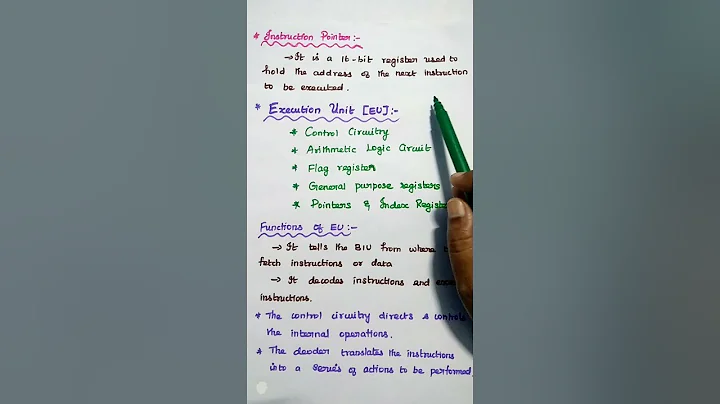 * Instruction Pointer:-
→ It is a 16-bit register used to
hold the address of the next instruction
to be executed.
* Execution Unit [EU]:-
* Control Circuitry
* Arithmetic Logic Circuit
* Flag register
* General purpose registers
* Pointers & Index
Functions of EU:-
→ It tells the BIU from where
fetch instructions or data
→ It decodes instructions and
instructions.
* The control circuitry directs & controls
the internal operations.
* The deoder translates the instructions
into a series of actions to be performed.